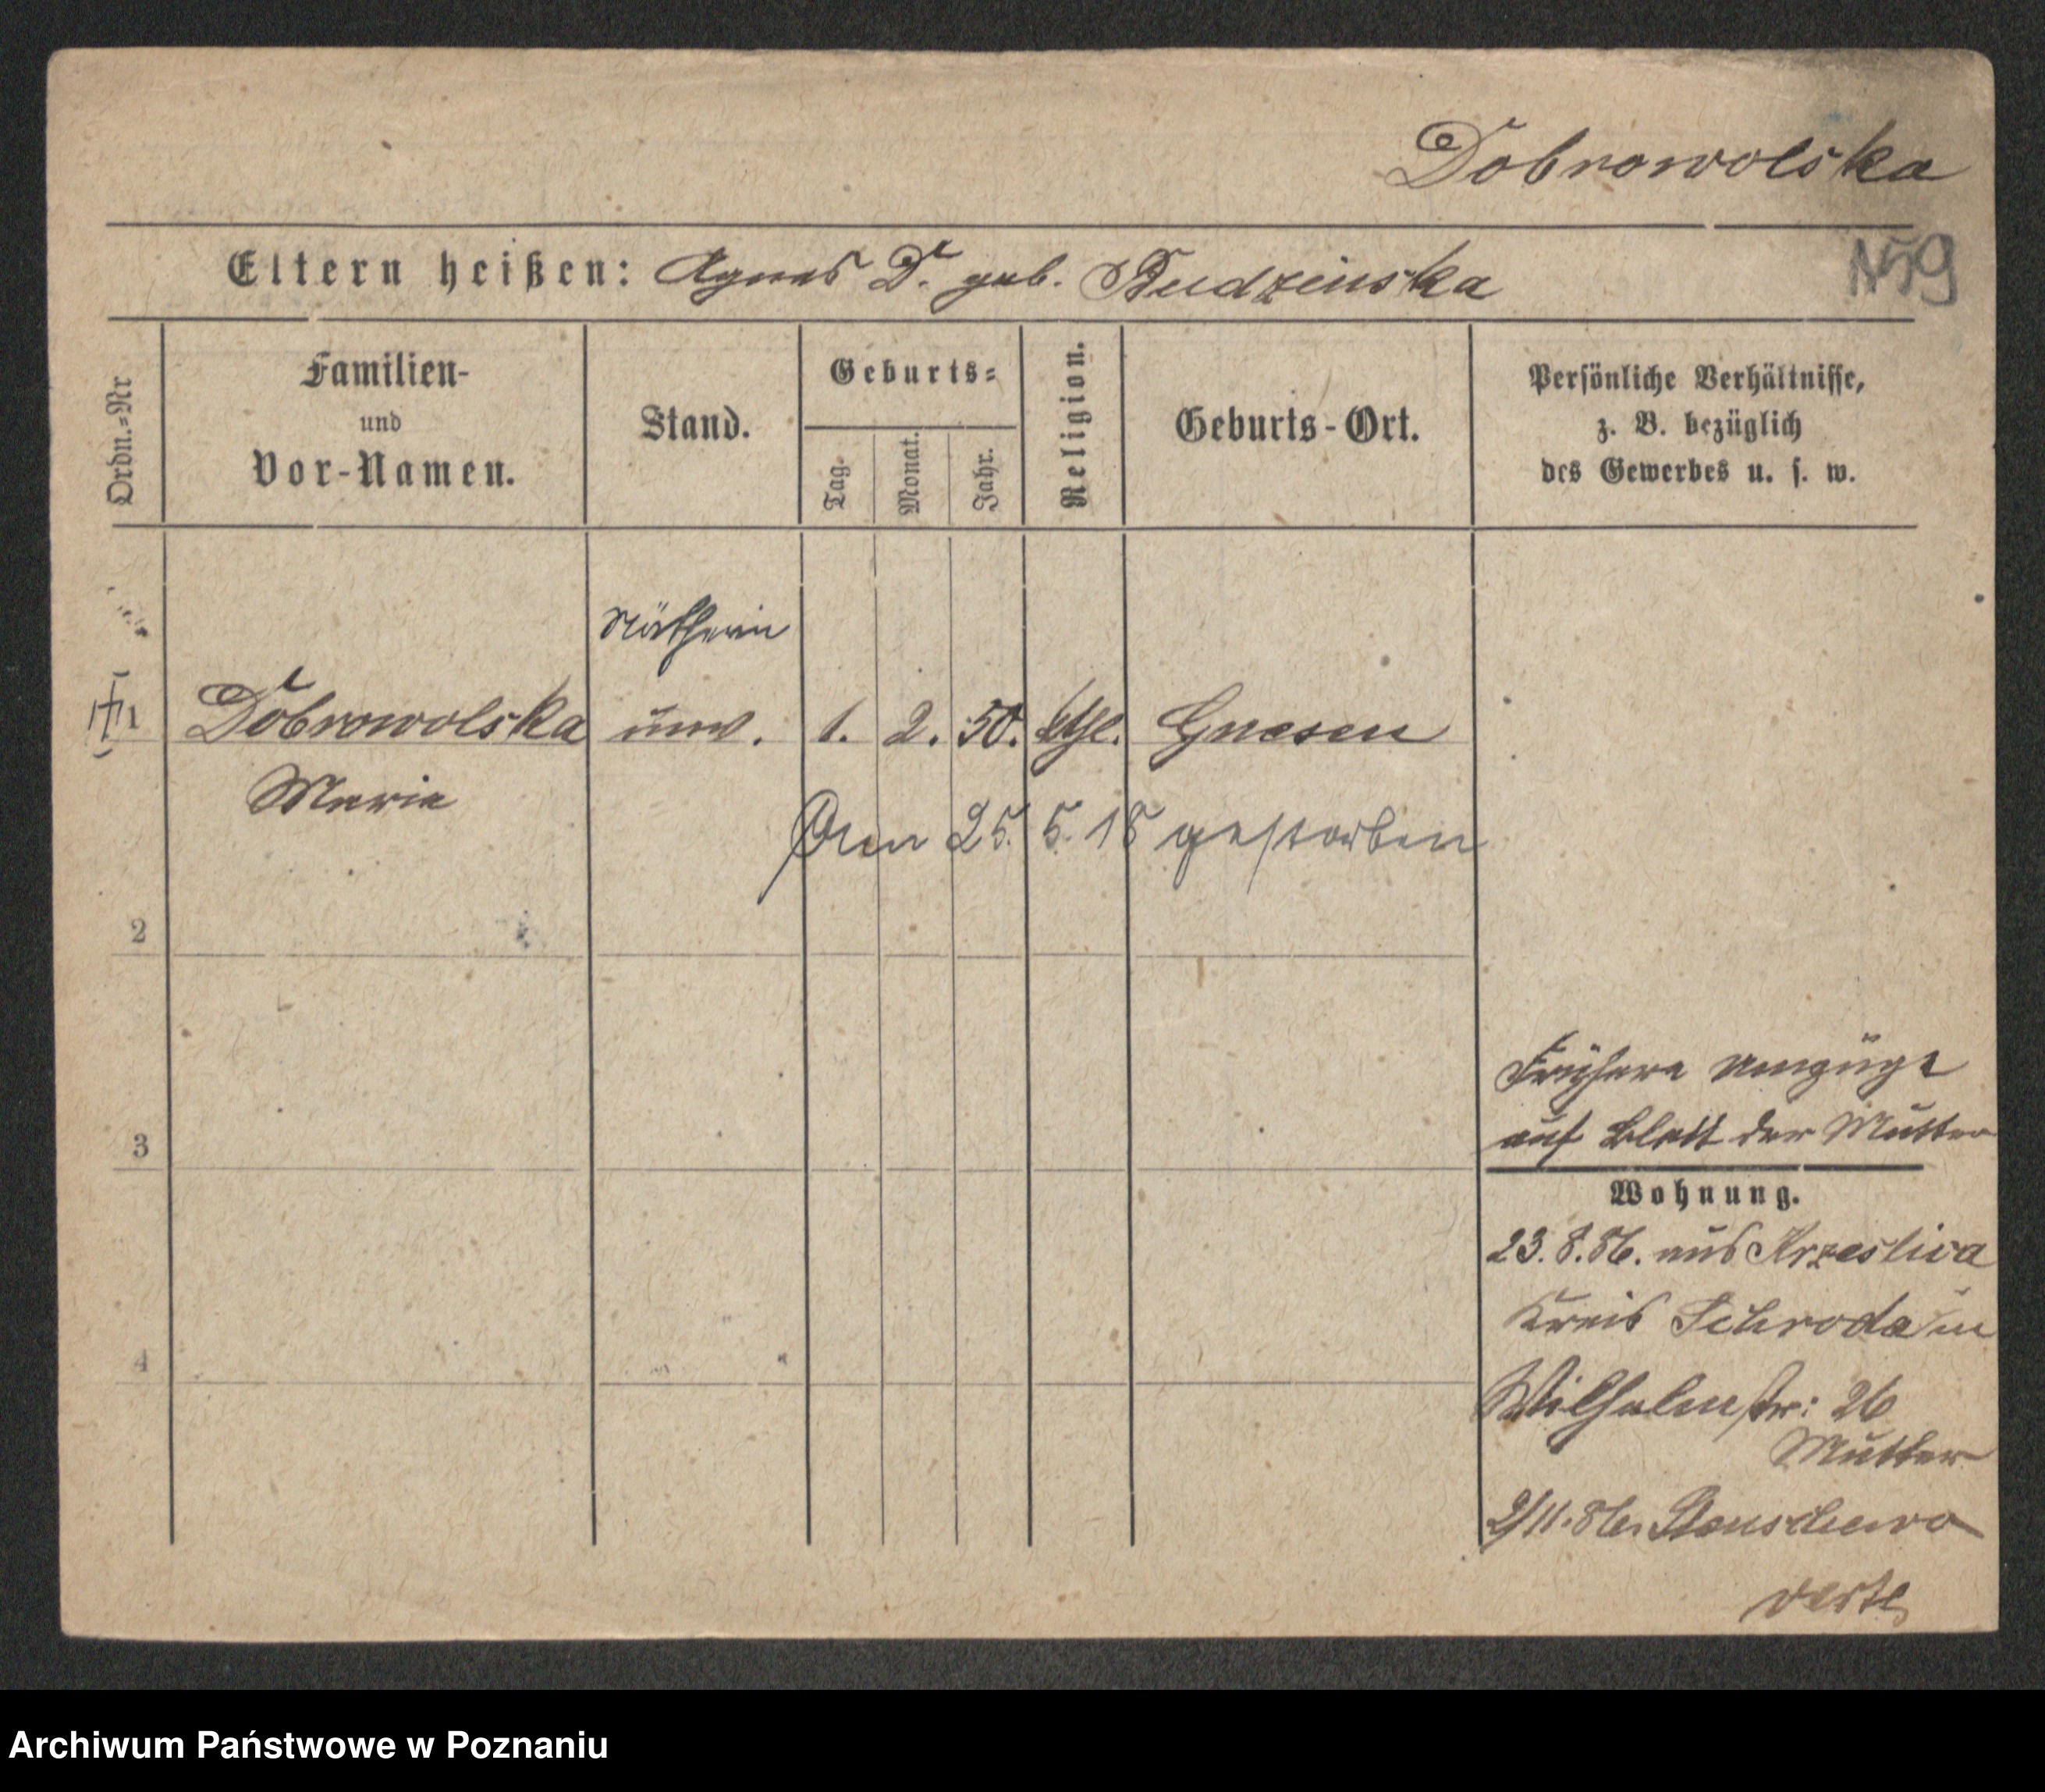 Dobrowolska
Eltern heißen: Agnes D. geb. Budzinska
1159
Ordn.-Nr
Familien-
und
Vor-Namen.
Stand.
Geburts-
Tag.
Monat.
Jahr.
Religion.
Geburts-Ort.
Persönliche Verhältnisse,
z. B. bezüglich
des Gewerbes u. s. w.
Nätherin
1 Dobrowolska unv. 1. 2. 50. ktl. Gnesen
Maria
Am 25. 5. 18 gestorben
2
3
4
Frühere Umzüge
auf Blatt der Mutter
Wohnung.
23. 8. 86. aus Krzeslica
Kreis Schroda in
Wilhelmstr: 26
Mutter
2/11. 86. Stenschewo
verte